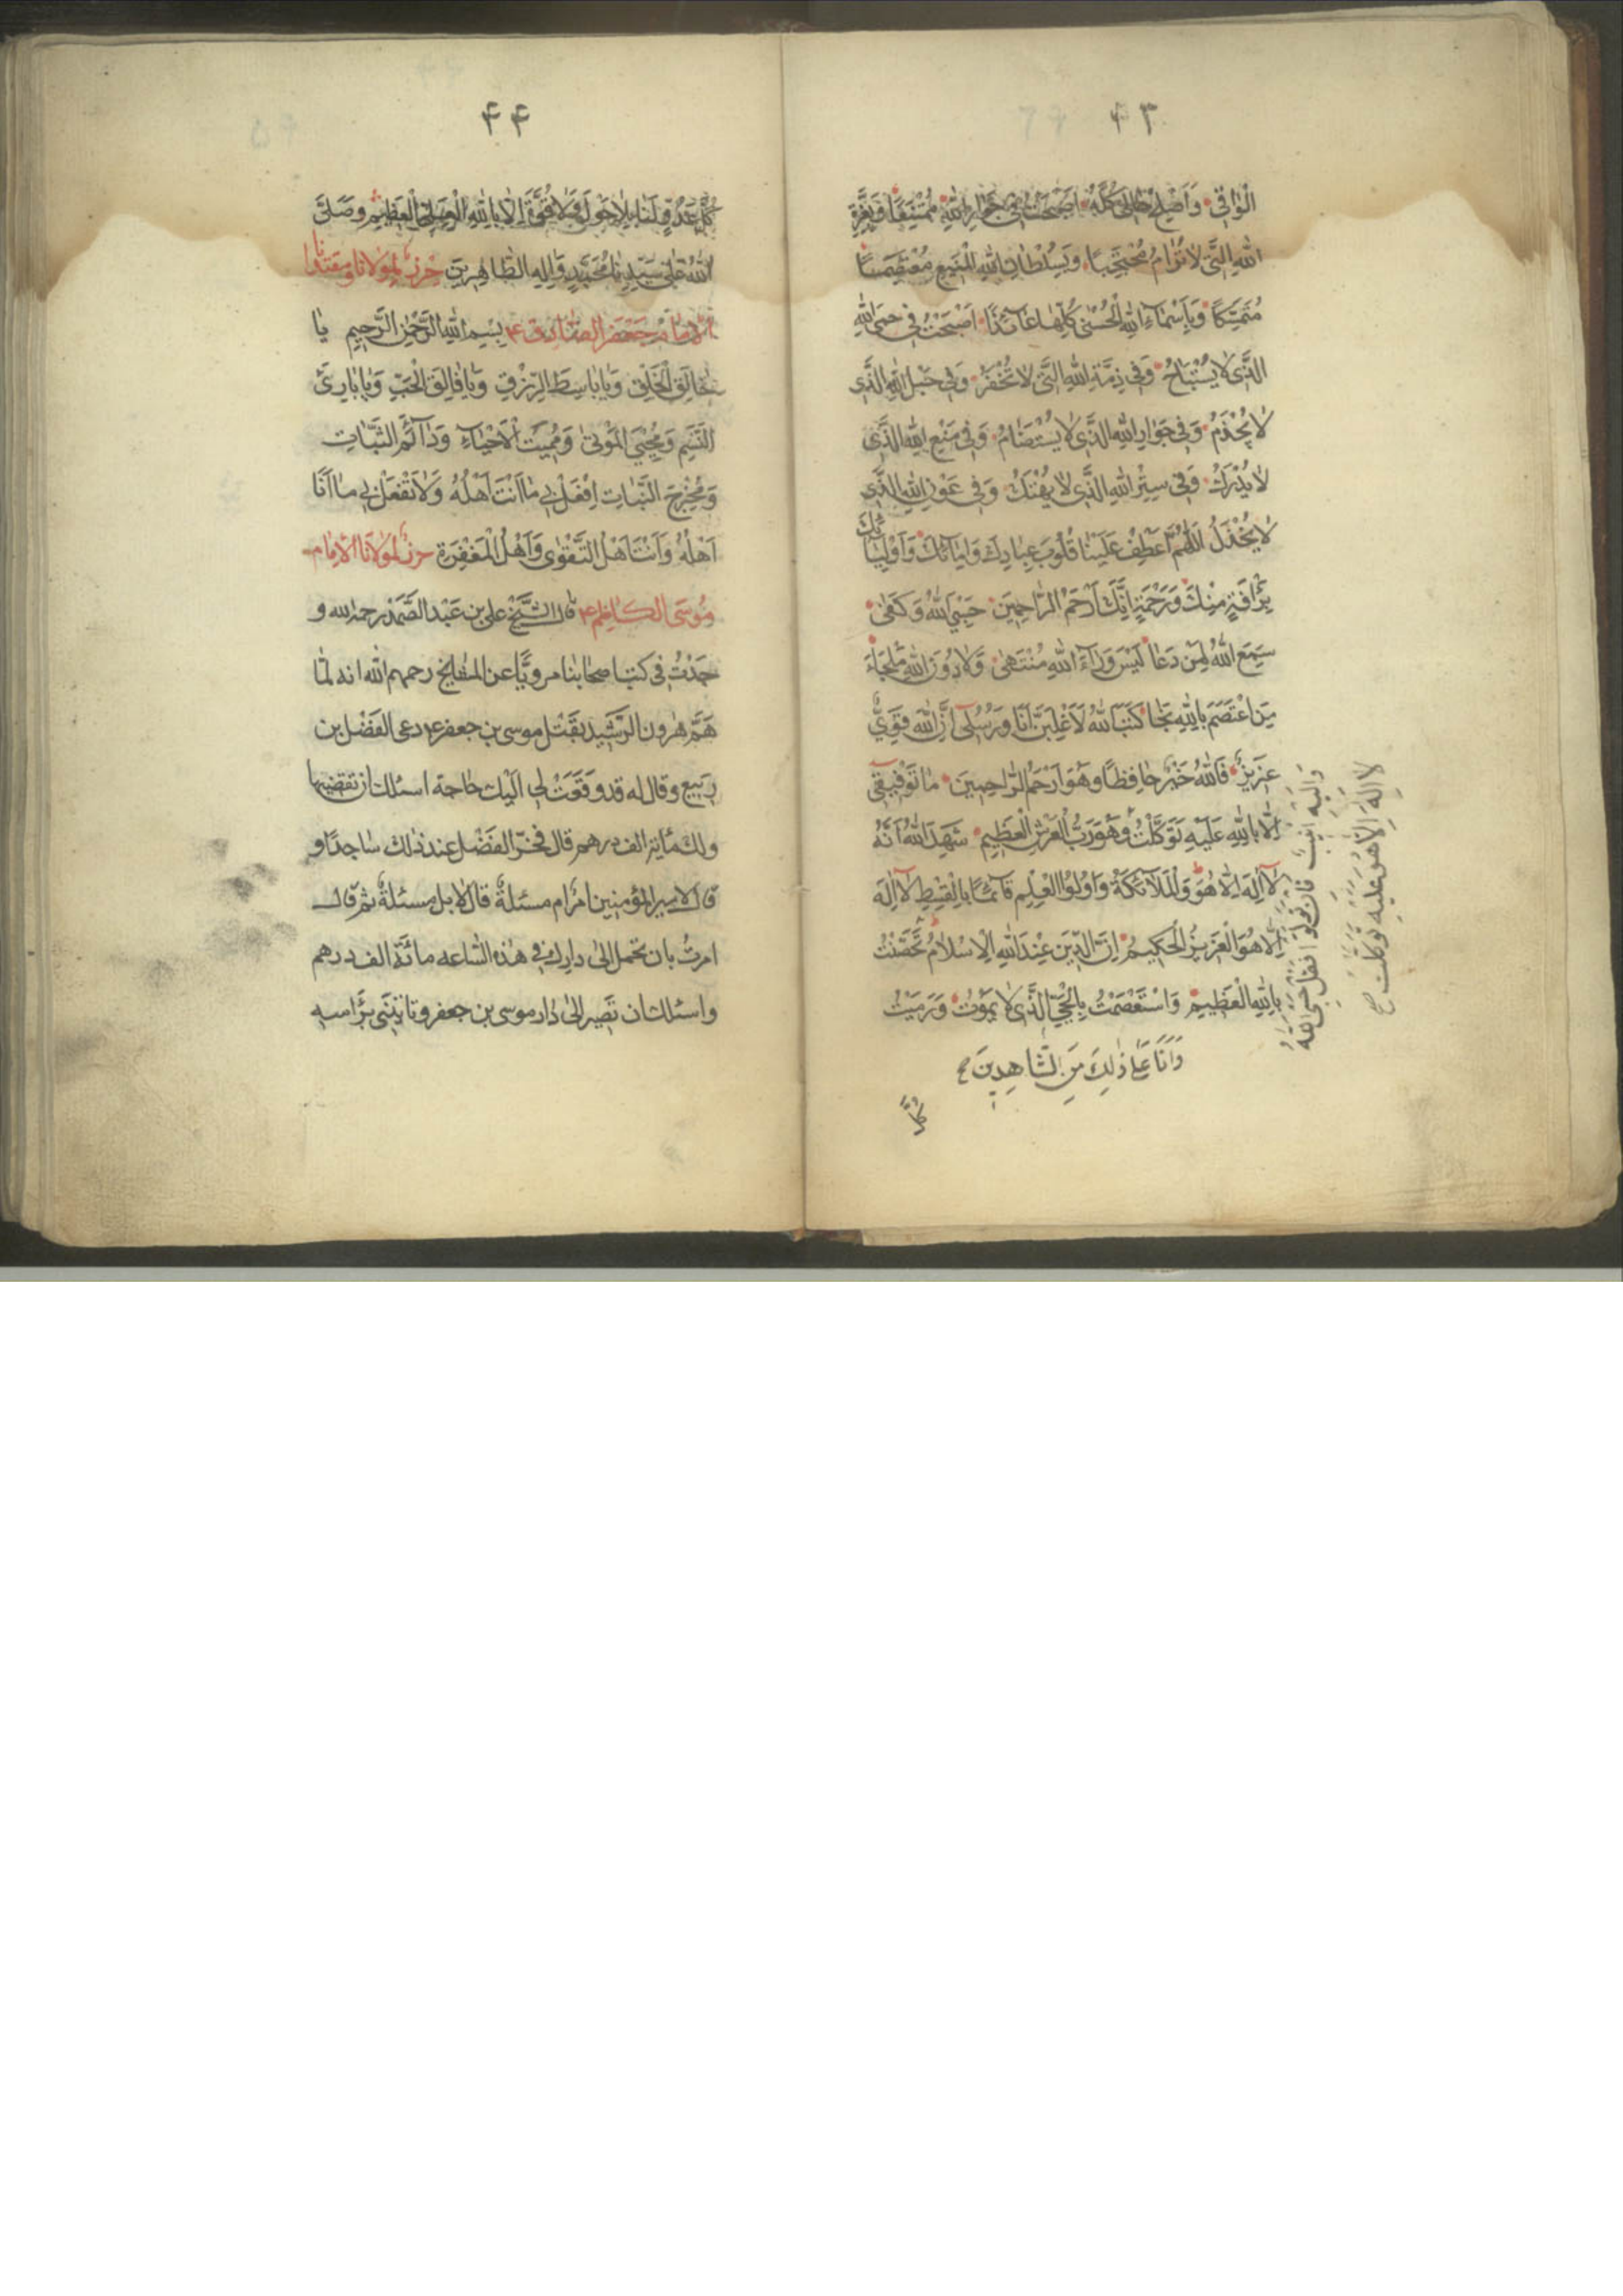 ۴۳
الْوٰاقی وَاَصْلِحْ حٰالی كُلَّهُ اَصْبَحْتُ فی جَوٰارِ اللهِ مُمْتَنِعًا وَبِعِزَّةِ
اللهِ الَّتی لٰا تُرٰامُ مُحْتَجِبًا وَبِسُلْطٰانِ اللهِ الْمَنیعِ مُعْتَصِمًا
مُتَمَسِّكًا وَبِاَسْمٰاءِ اللهِ الْحُسْنٰی كُلِّهٰا عٰائِذًا اَصْبَحْتُ فی حِمَی اللهِ
الَّذی لٰا یُسْتَبٰاحُ وَفی ذِمَّةِ اللهِ الَّتی لٰا تُخْفَرُ وَفی حَبْلِ اللهِ الَّذی
لٰا یُجْذَمُ وَفی جَوٰارِ اللهِ الَّذی لٰا یُسْتَضٰامُ وَفی مَنْعِ اللهِ الَّذی
لٰا یُدْرَكُ وَفی سِتْرِ اللهِ الَّذی لٰا یُهْتَكُ وَفی عَوْنِ اللهِ الَّذی
لٰا یُخْذَلُ اَللّٰهُمَّ اعْطِفْ عَلَیْنٰا قُلُوبَ عِبٰادِكَ وَاِمٰائِكَ وَاَوْلِیٰائِكَ
بِرَأْفَةٍ مِنْكَ وَرَحْمَةٍ اِنَّكَ اَرْحَمُ الرّٰاحِمینَ حَسْبِیَ اللهُ وَكَفٰی
سَمِعَ اللهُ لِمَنْ دَعٰا لَیْسَ وَرٰاءَ اللهِ مُنْتَهٰی وَلٰا دُونَ اللهِ مَلْجَاءٌ
مَنِ اعْتَصَمَ بِاللهِ نَجٰا كَتَبَ اللهُ لَاَغْلِبَنَّ اَنَا وَرُسُلی اِنَّ اللهَ قَوِیٌّ
عَزیزٌ فَاللهُ خَیْرٌ حٰافِظًا وَهُوَ اَرْحَمُ الرّٰاحِمینَ مٰا تَوْفیقی
اِلّٰا بِاللهِ عَلَیْهِ تَوَكَّلْتُ وَهُوَ رَبُّ الْعَرْشِ الْعَظیمِ شَهِدَ اللهُ اَنَّهُ
لٰا اِلٰهَ اِلّٰا هُوَ وَالْمَلٰائِكَةُ وَاُولُوا الْعِلْمِ قٰائِمًا بِالْقِسْطِ لٰا اِلٰهَ
اِلّٰا هُوَ الْعَزیزُ الْحَكیمُ اِنَّ الدّینَ عِنْدَ اللهِ الْاِسْلٰامُ تَحَصَّنْتُ
بِاللهِ الْعَظیمِ وَاسْتَعْصَمْتُ بِالْحَیِّ الَّذی لٰا یَمُوتُ وَرَمَیْتُ
وَاَنَا عَلٰی ذٰلِكَ مِنَ الشّٰاهِدینَ
كُلَّ
وَاِلَیْهِ اُنیبُ فَاِنْ تَوَلَّوْا فَقُلْ حَسْبِیَ اللهُ
لٰا اِلٰهَ اِلّٰا هُوَ عَلَیْهِ تَوَكَّلْتُ
۴۴
كُلَّ عَدُوٍّ لَنٰا بِلٰا حَوْلَ وَلٰا قُوَّةَ اِلّٰا بِاللهِ الْعَلِیِّ الْعَظیمِ وَصَلَّی
اللهُ عَلٰی سَیِّدِنٰا مُحَمَّدٍ وَاٰلِهِ الطّٰاهِرینَ حرز لمولانا ومقتدانا
الامام جعفر الصّادق ع بِسْمِ اللهِ الرَّحْمٰنِ الرَّحیمِ یٰا
خٰالِقَ الْخَلْقِ وَیٰا بٰاسِطَ الرِّزْقِ وَیٰا فٰالِقَ الْحَبِّ وَیٰا بٰارِئَ
النَّسَمِ وَمُحْیِیَ الْمَوْتٰی وَمُمیتَ الْاَحْیٰاءِ وَدٰائِمَ الثَّبٰاتِ
وَمُخْرِجَ النَّبٰاتِ اِفْعَلْ بی مٰا اَنْتَ اَهْلُهُ وَلٰا تَفْعَلْ بی مٰا اَنَا
اَهْلُهُ وَاَنْتَ اَهْلُ التَّقْوٰی وَاَهْلُ الْمَغْفِرَةِ حرز لمولانا الامام
موسی الكاظم ع قال الشیخ علی بن عبد الصمد رحمه الله و
جدت فی كتب اصحابنا مرویّا عن المشایخ رحمهم الله انه لمّا
همّ هرون الرّشید بقتل موسی بن جعفر ع دعی الفضل بن
ربیع وقال له قد وقعت لی الیك حاجة اسئلك ان تقضیها
ولك مائة الف درهم قال فخرّ الفضل عند ذلك ساجدًا و
قال لامیر المؤمنین امرٌ ام مسئلة قال لا بل مسئلة ثم قال
امرتُ بان تحمل الی دارك فی هذه السّاعه مائة الف درهم
واسئلك ان تصیر الی دار موسی بن جعفر وتاتینی برأسه